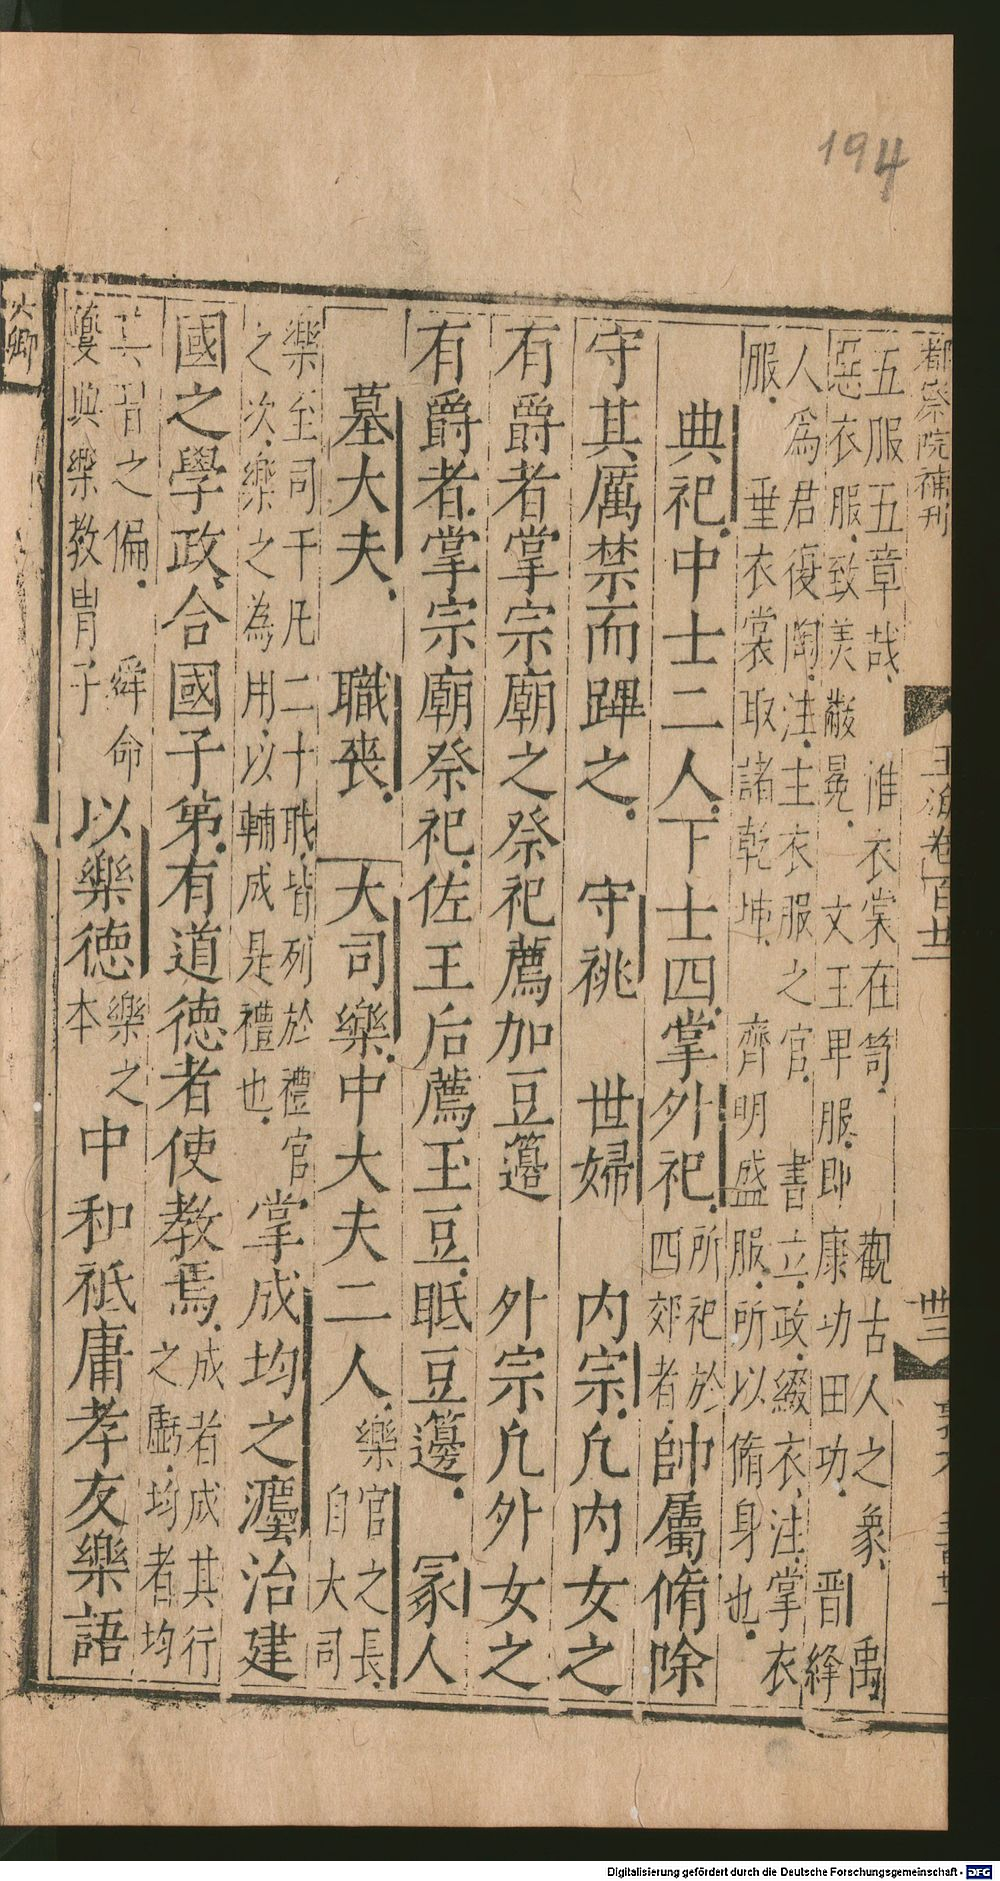 194
都察院補刊
玉海卷百廿
五服五章哉　惟衣裳在笥　觀古人之象　禹
惡衣服致美黻冕　文王卑服即康功田功　晉絳
人爲君復陶注主衣服之官　書立政綴衣注掌衣
服　垂衣裳取諸乾坤　齊明盛服所以脩身也
典祀中士二人下士四掌外祀
所祀於
四郊者
帥屬脩除
守其厲禁而蹕之　守祧　世婦　内宗凡内女之
有爵者掌宗廟之祭祀薦加豆籩　外宗凡外女之
有爵者掌宗廟祭祀佐王后薦玉豆眡豆籩　冢人
墓大夫　職喪　大司樂中大夫二人
樂官之長
自大司
樂至司干凡二十職皆列於禮官
之次樂之為用以輔成是禮也
掌成均之灋治建
國之學政合國子第有道德者使教焉
成者成其行
之虧均者均
其習之偏　舜命
夔典樂教胄子
以樂德
樂之
本
中和祗庸孝友樂語
六卿
Digitalisierung gefördert durch die Deutsche Forschungsgemeinschaft - DFG